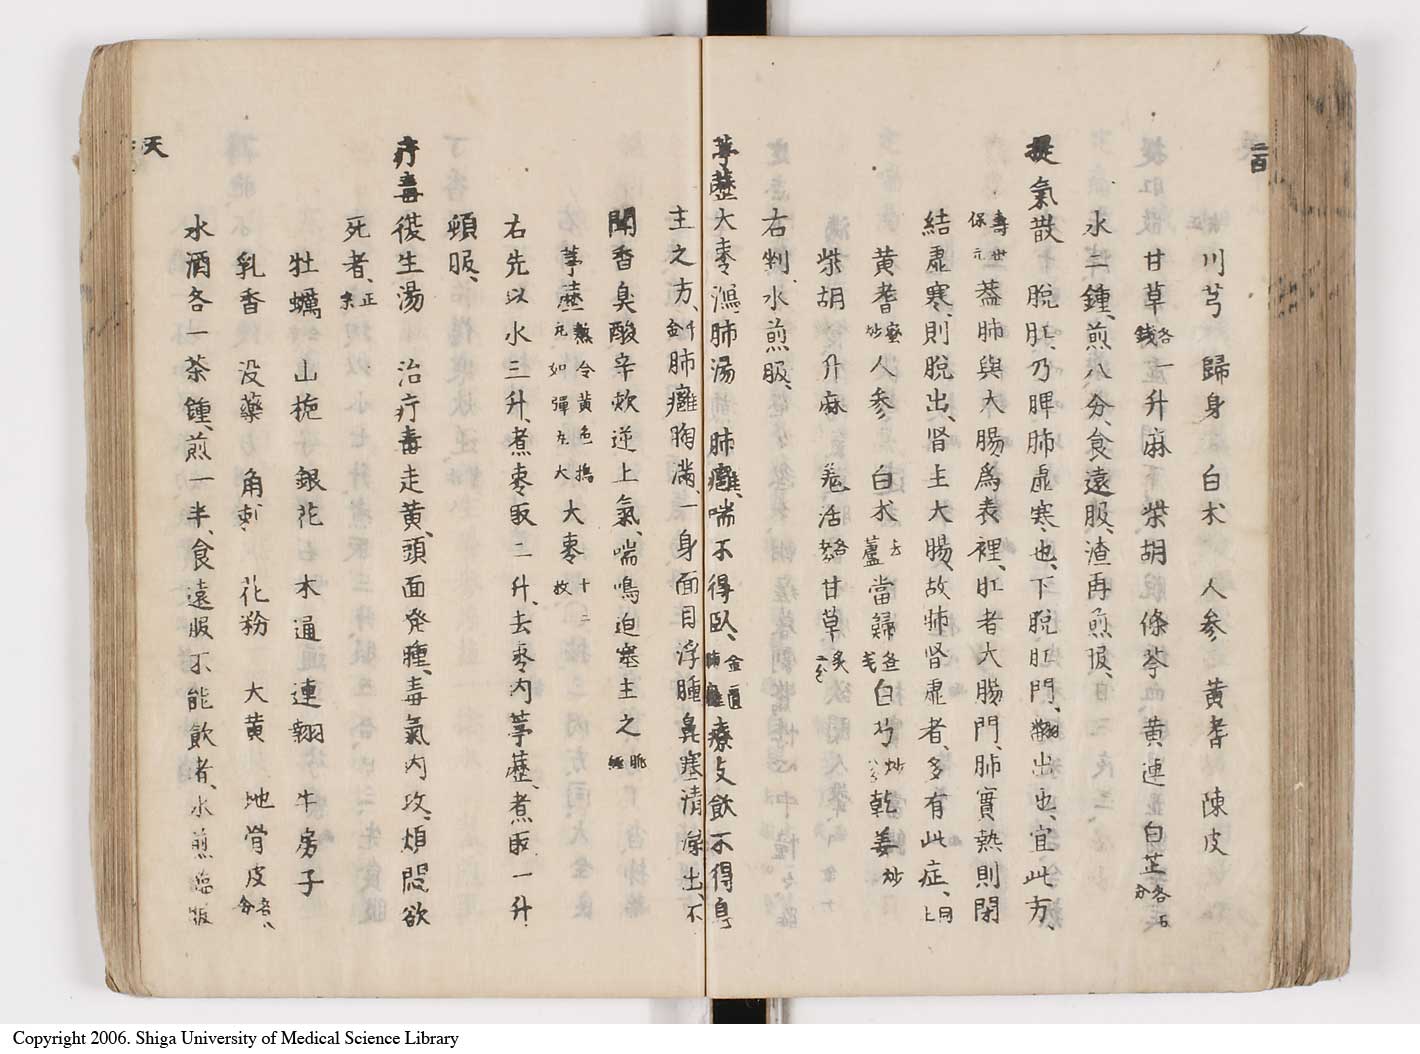 二百
川芎 歸身 白朮 人參 黄耆 陳皮
甘草各一錢 升麻 柴胡 條芩 黄連 白芷各五分
水二鍾、煎八分、食遠服、渣再煎服、
提氣散 脱肛、乃脾肺虚寒也、下脱肛門、翻出也、宜此方、
壽世保元 蓋肺與大腸爲表裡、肛者大腸門、肺實熱則閉
結虚寒、則脱出、腎主大腸、故肺腎虚者、多有此症、同上
黄耆蜜炒 人参 白朮去蘆 當歸 白芍炒 乾姜炒
柴胡 升麻 羗活各 甘草炙
右剉、水煎服、
葶藶大棗瀉肺湯 肺癰、喘不得臥、金匱肺癰 療支飲不得息
主之方、千金 肺癰胸滿、一身面目浮腫鼻塞清涕出、不
聞香臭酸辛欬逆上氣、喘鳴迫塞主之 脈經
葶藶熬令黄色搗元如彈丸大 大棗十二枚
右先以水三升、煮棗取二升、去棗内葶藶、煮取一升
頓服、
疔毒復生湯 治疔毒走黄、頭面発腫、毒氣内攻、煩悶欲
死者、正宗
牡蠣 山梔 銀花 木通 連翹 牛房子
乳香 没藥 角刺 花粉 大黄 地骨皮各八分
水酒各一茶鍾、煎一半、食遠服不能飲者、水煎臨服
天